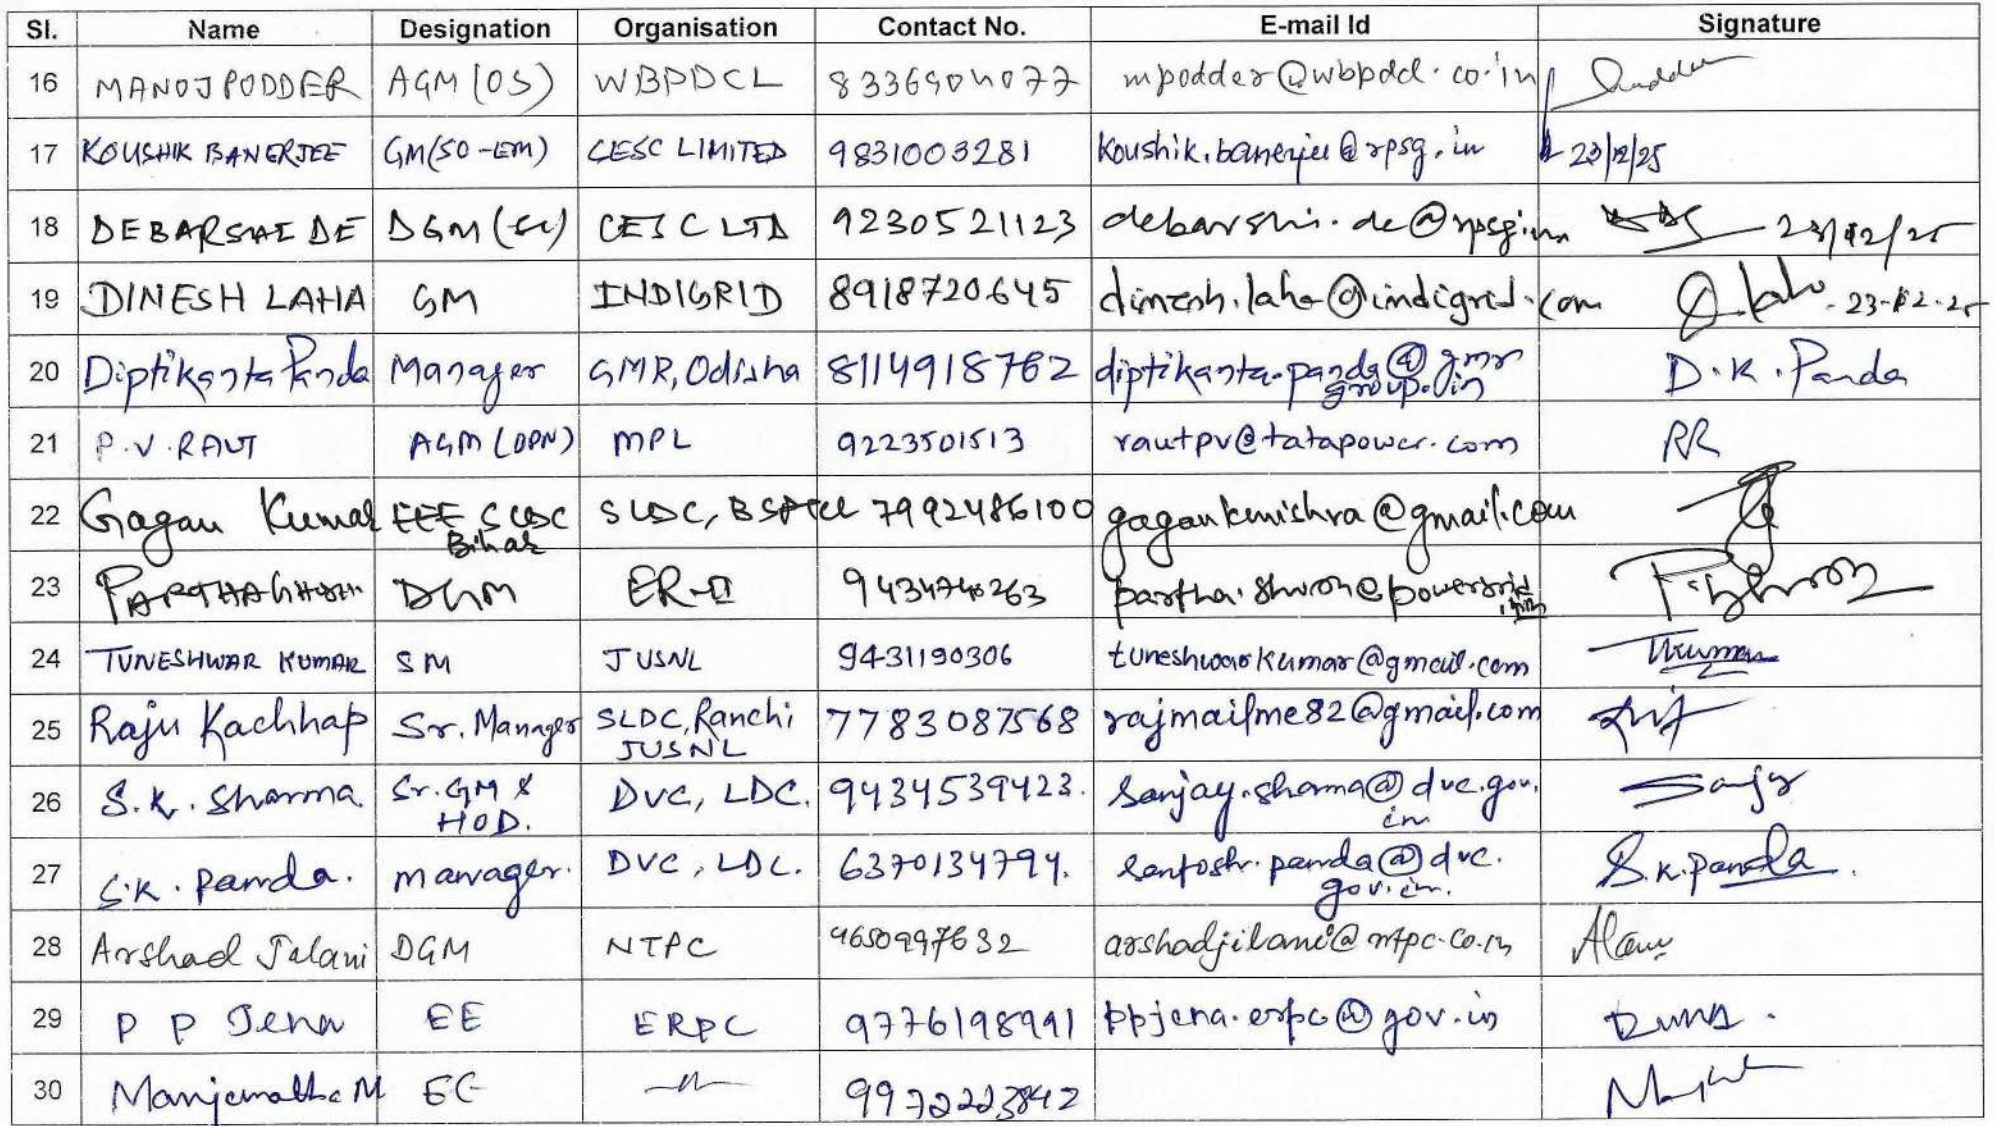 Sl. Name Designation Organisation Contact No. E-mail Id Signature
16 MANOJ PODDER AGM (OS) WBPDCL 8336904077 mpodder@wbpdcl.co.in
17 KOUSHIK BANERJEE GM(SO-EM) CESC LIMITED 9831003281 koushik.banerjee@rpsg.in 23/12/25
18 DEBARSHI DE DGM ( ) CESC LTD 9230521123 debarshi.de@rpsg.in 23/12/25
19 DINESH LAHA GM INDIGRID 8918720645 dinesh.laha@indigrid.com D. Laha 23-12-25
20 Diptikanta Panda Manager GMR, Odisha 8114918762 diptikanta.panda@gmr D.K. Panda
group.in
21 P.V. RAUT AGM (OPN) MPL 9223501513 rautpv@tatapower.com RR
22 Gagan Kumar EEE SLDC SLDC, 7992486100 gagankmishra@gmail.com
Bihar
23 PARTHA GHOSH DGM ER-II 9434740263 partha.ghosh@powergrid
.in
24 TUNESHWAR KUMAR SM JUSNL 9431190306 tuneshwarkumar@gmail.com TKumar
25 Raju Kachhap Sr. Manager SLDC, Ranchi 7783087568 rajmailme82@gmail.com
JUSNL
26 S.K. Sharma Sr. GM & DVC, LDC. 9434539423. Sanjay.sharma@dvc.gov. Sanjy
HOD. in
27 S.K. Panda. Manager. DVC, LDC. 6370134794. Santosh.panda@dvc. S.K. Panda.
gov.in.
28 Arshad Jelani DGM NTPC 9650997632 arshadjilani@ntpc.co.in Alam
29 P P Jena EE ERPC 9776198991 ppjena.erpc@gov.in
30 Manjunatha M EE —〃— 9972223842